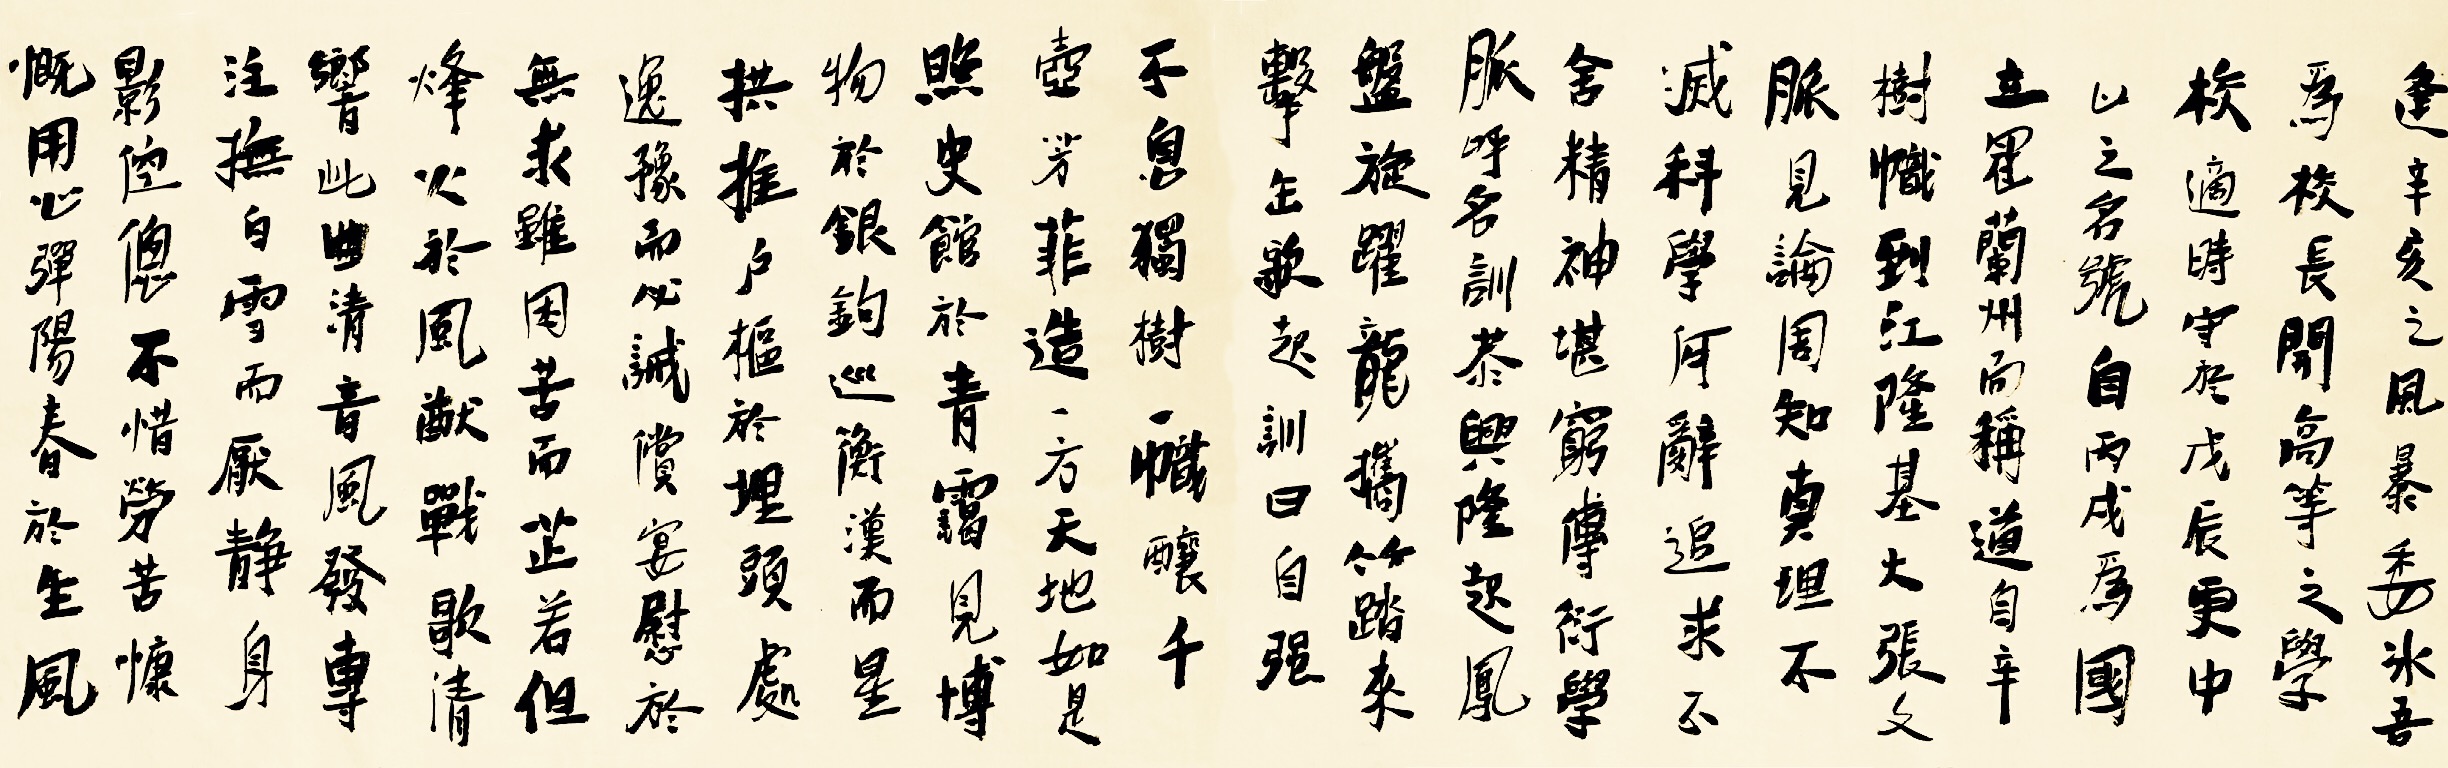 逢辛亥之風暴委冰吾
爲校長開高等之學
校適時守於戊辰更中
山之名號自丙戌爲國
立翟蘭州而稱道自辛
樹幟到江隆基大張文
脈見論周知真理不
滅科學何辭追求不
舍精神堪窮傳衍學
脈呼名訓恭興隆起鳳
盤旋躍龍攜竹踏來
擊缶歌起訓曰自强
不息獨樹一幟釀千
壺芳菲造一方天地如是
照史館於青靄見博
物於銀鉤巡衡漢而星
拱推户樞於埋頭處
逸豫而必誠償宴慰於
無求雖困苦而芷若但
烽火於風猷戰歌清
響此曲清音風發專
注撫白雪而厭静身
影倥傯不惜勞苦慷
慨用心彈陽春於生風